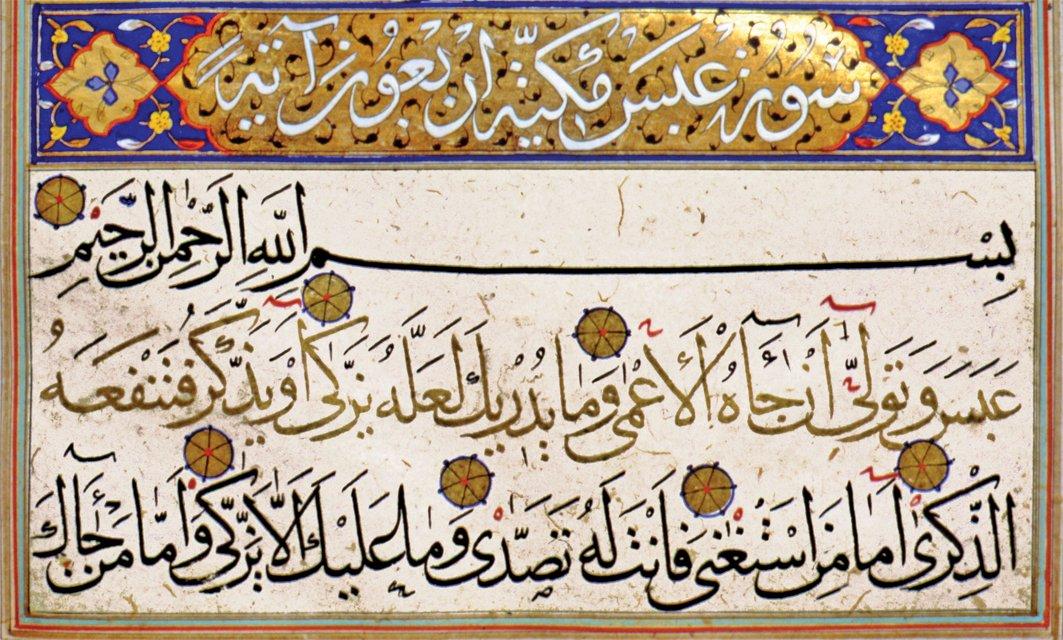 سُورَةُ عَبَسَ مَكِّيَّةٌ اَرْبَعُونَ آيَةً
بِسْمِ اللَّهِ الرَّحْمٰنِ الرَّحِيمِ
عَبَسَ وَتَوَلّٰى اَنْ جَآءَهُ الْاَعْمٰى وَمَا يُدْرِيكَ لَعَلَّهُ يَزَّكّٰى اَوْ يَذَّكَّرُ فَتَنْفَعَهُ
الذِّكْرٰى اَمَّا مَنِ اسْتَغْنٰى فَاَنْتَ لَهُ تَصَدّٰى وَمَا عَلَيْكَ اَلَّا يَزَّكّٰى وَاَمَّا مَنْ جَآءَكَ